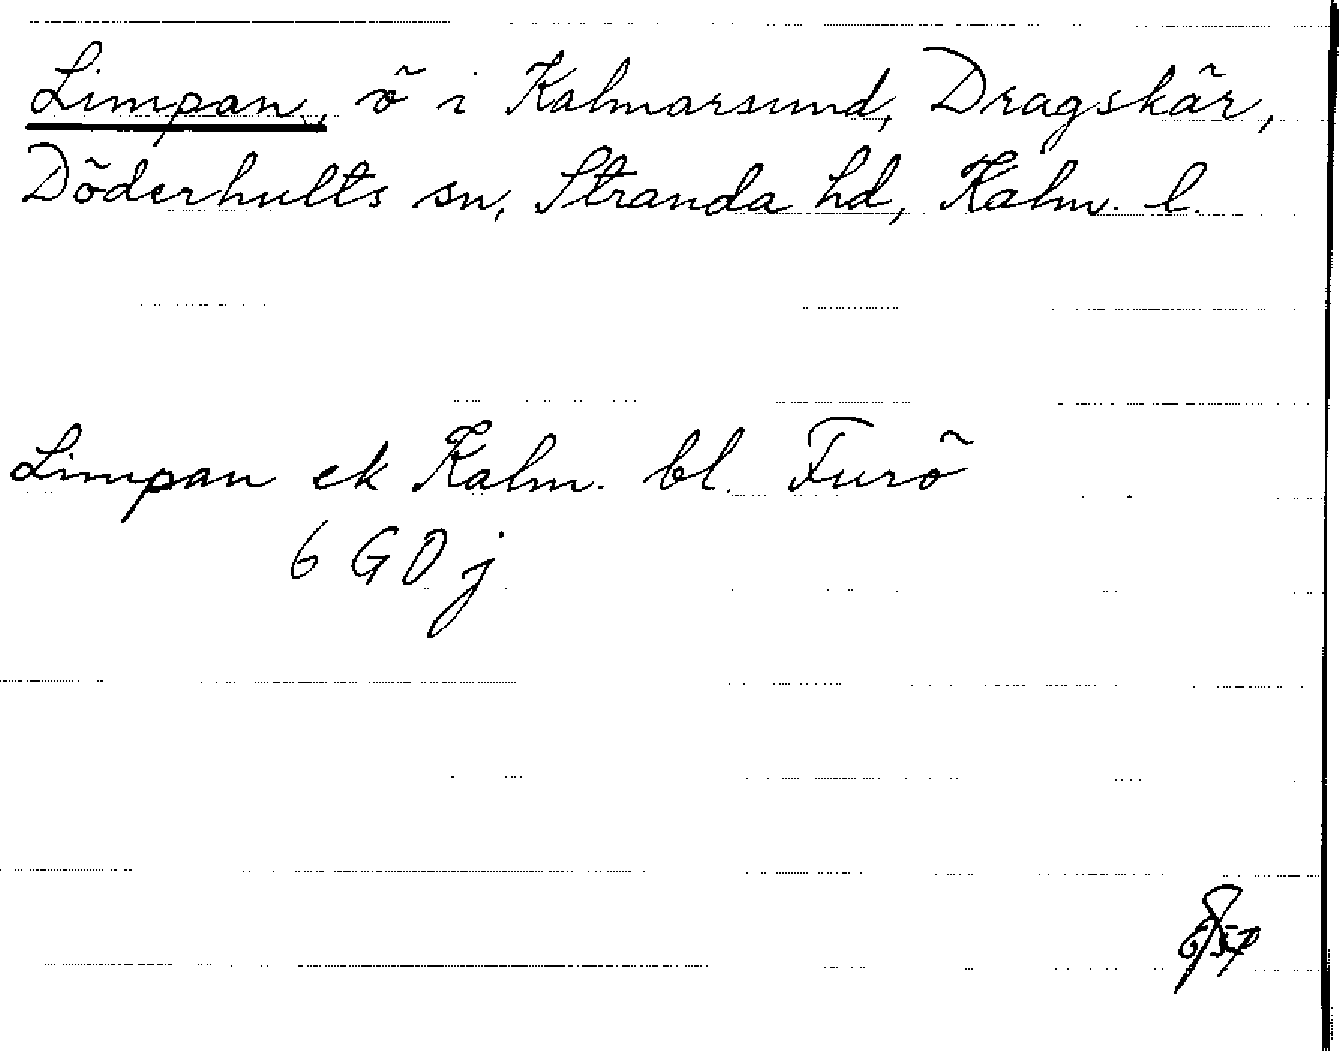 Limpan, ö i Kalmarsund, Dragskär,
Döderhults sn, Stranda hd, Kalm. l.
Limpan ek Kalm. bl. Furö
6 G D j